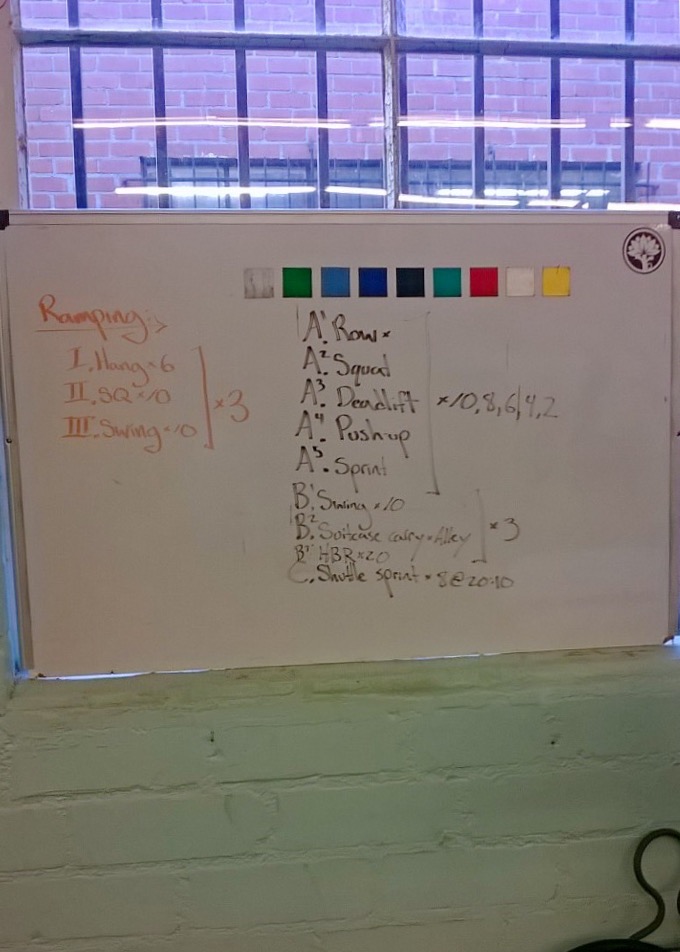 Ramping:
I. Hang × 6
II. SQ × 10
III. Swing × 10
× 3
A1. Row ×
A2. Squat
A3. Deadlift
A4. Push-up
A5. Sprint
× 10, 8, 6, 4, 2
B1. Swing × 10
B2. Suitcase carry × Alley
B3. HBR × 20
× 3
C. Shuttle sprint × 8 @ 20:10